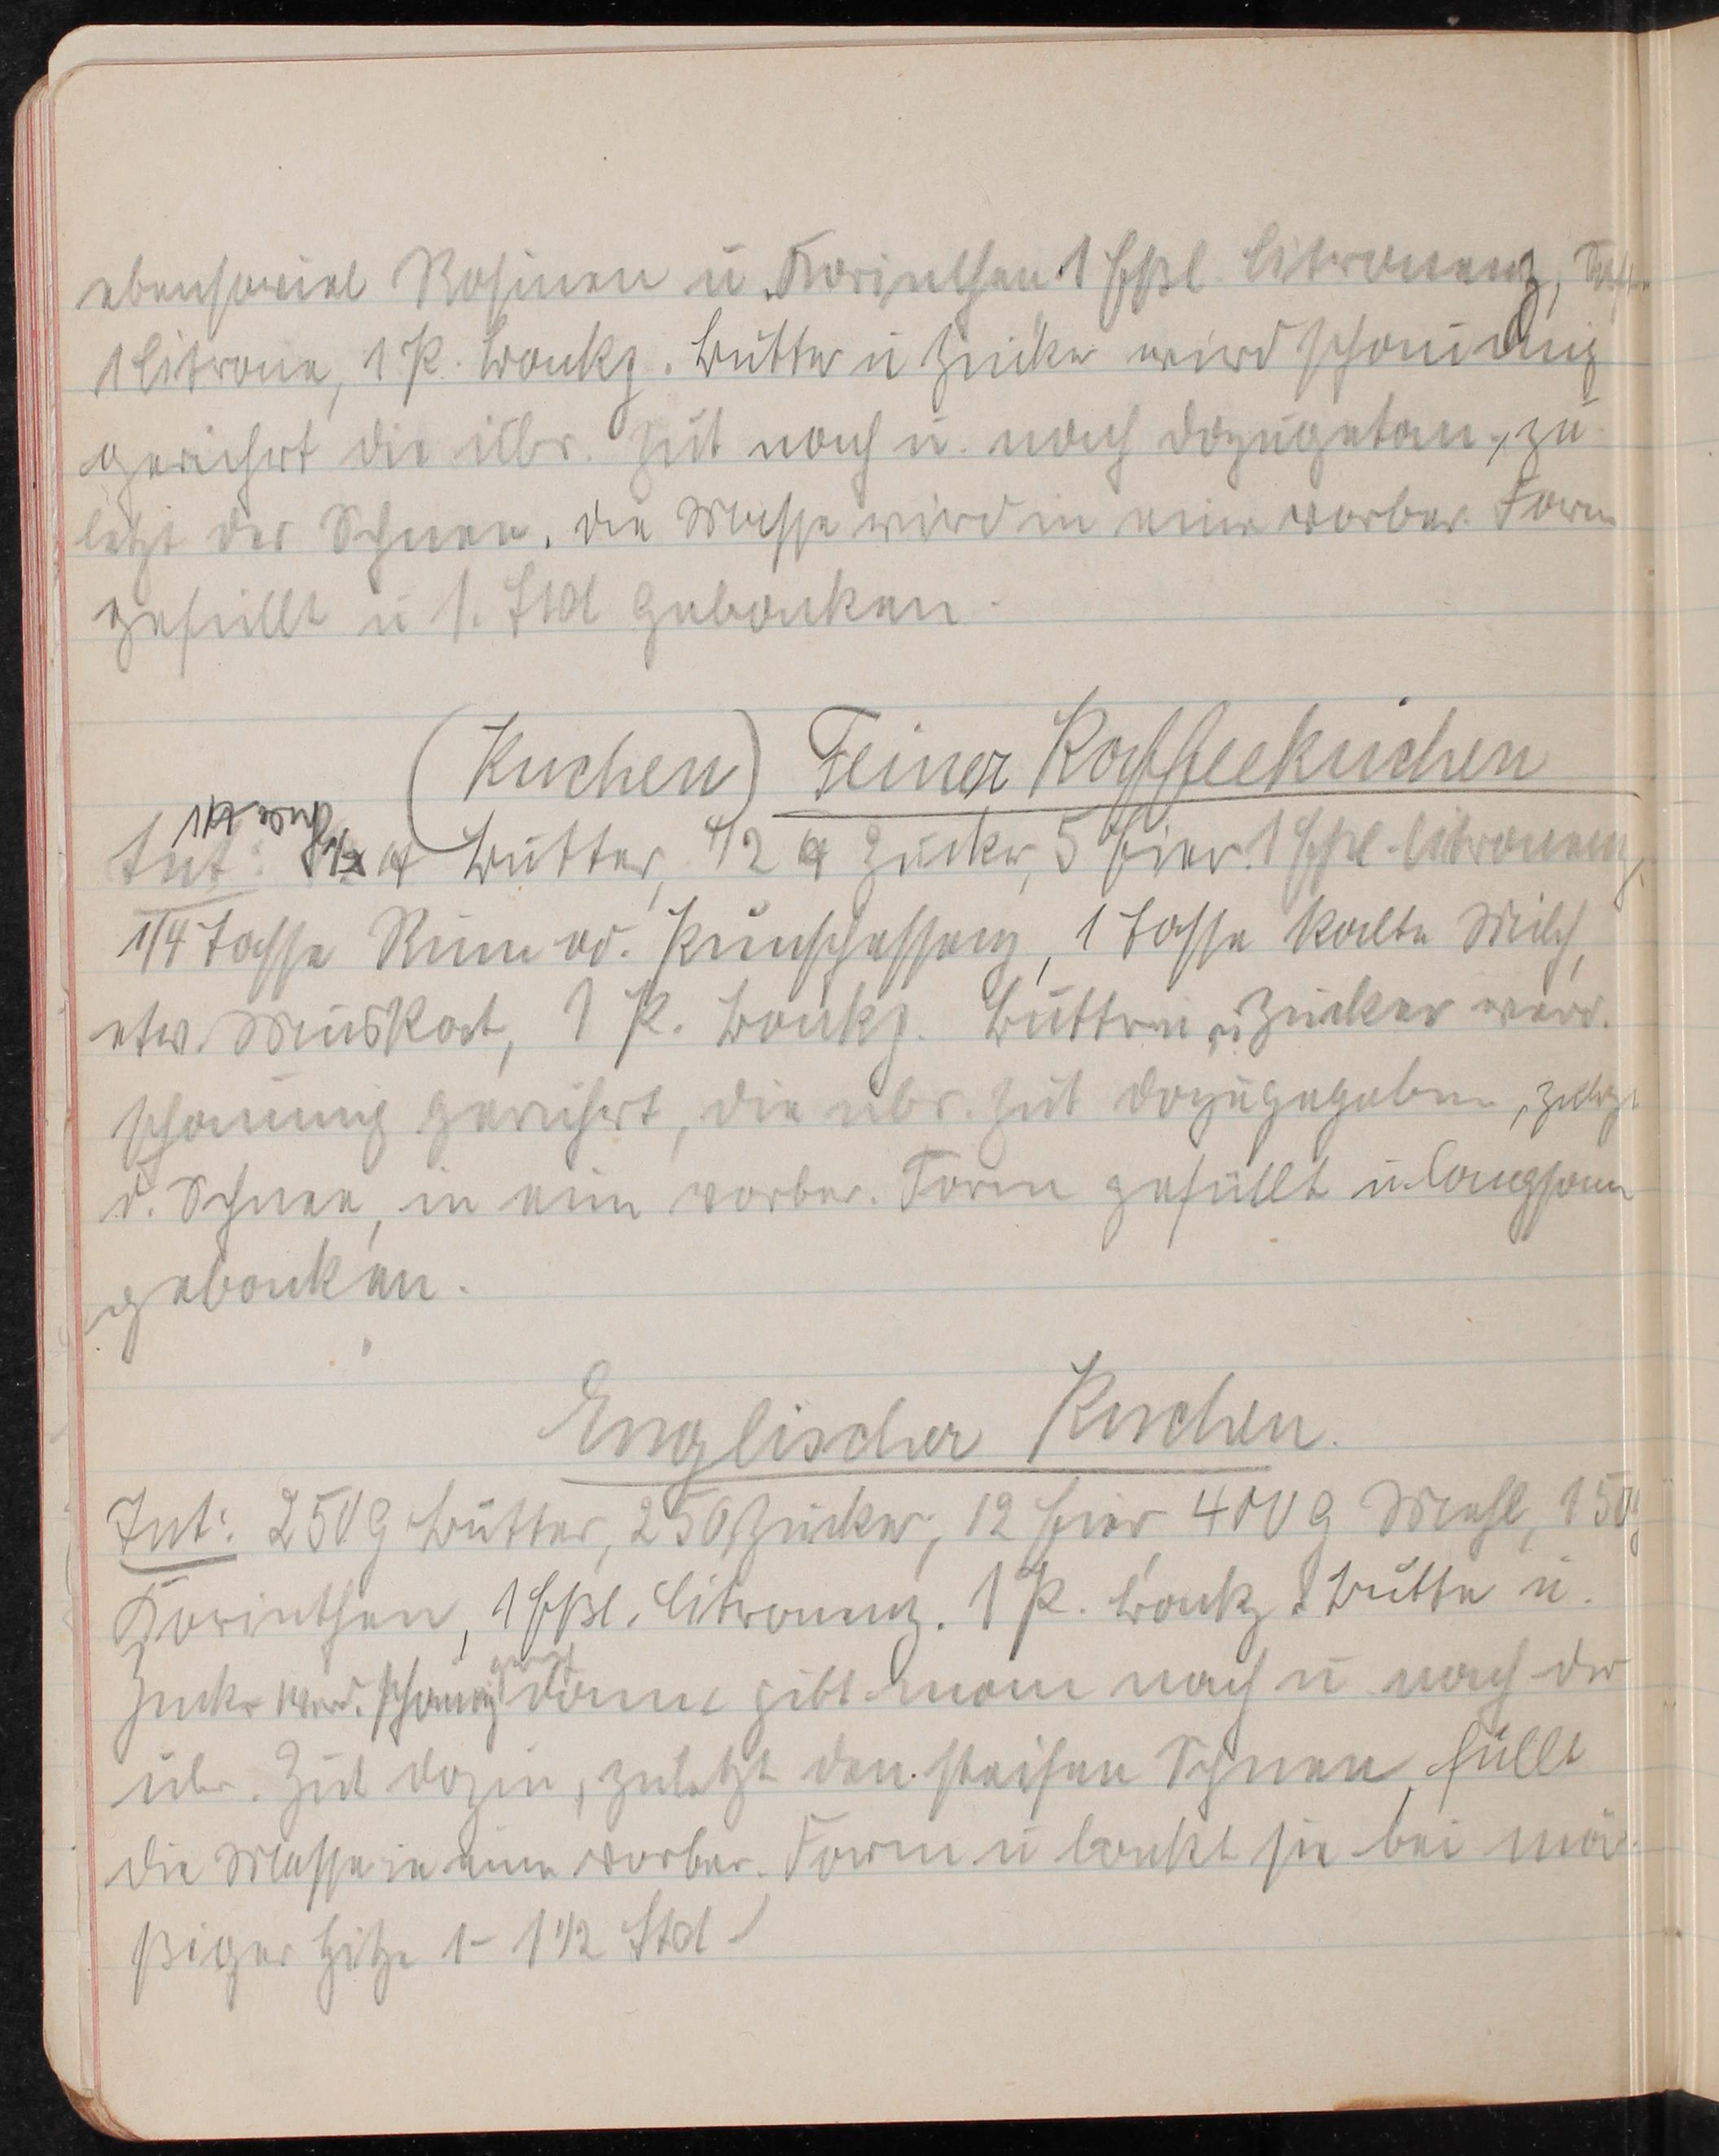 ebensoviel Rosinen u. Korinthen 1 Eßl. Citronenz,
1 Citrone, 1 P. Backp. Butter u Zucker wird schaumig
gerührt die übr. Zut nach u. nach dazugetan, zu
letzt der Schnee, die Masse wird in eine vorber. Form
gefüllt u 1. Std gebacken.
(Kuchen) Feiner Kaffeekuchen
Zut: 1/2 ℔ Butter, 1/2 ℔ Zucker, 5 Eier 1 Eßl. Citronenz,
1/4 Tasse Rum od. Punschessenz, 1 Tasse kalte Milch,
etw. Muskat, 1 P. Backp. Butter u Zucker werd.
schaumig gerührt, die übr. Zut dazugegeben, zuletzt
d. Schnee, in eine vorber. Form gefüllt u. langsam
gebacken.
Englischer Kuchen.
Zut: 250 g Butter, 250 Zucker, 12 Eier 400 g Mehl, 150 g
Korinthen, 1 Eßl. Citronenz. 1 P. Backp. Butte u.
Zucker werd. schaumig gerührt dann gibt man nach u nach die
übr. Zut dazu, zuletzt den steifen Schnee, füllt
die Masse in eine vorber. Form u backt sie bei mä
ßiger Hitze 1 - 1 1/2 Std